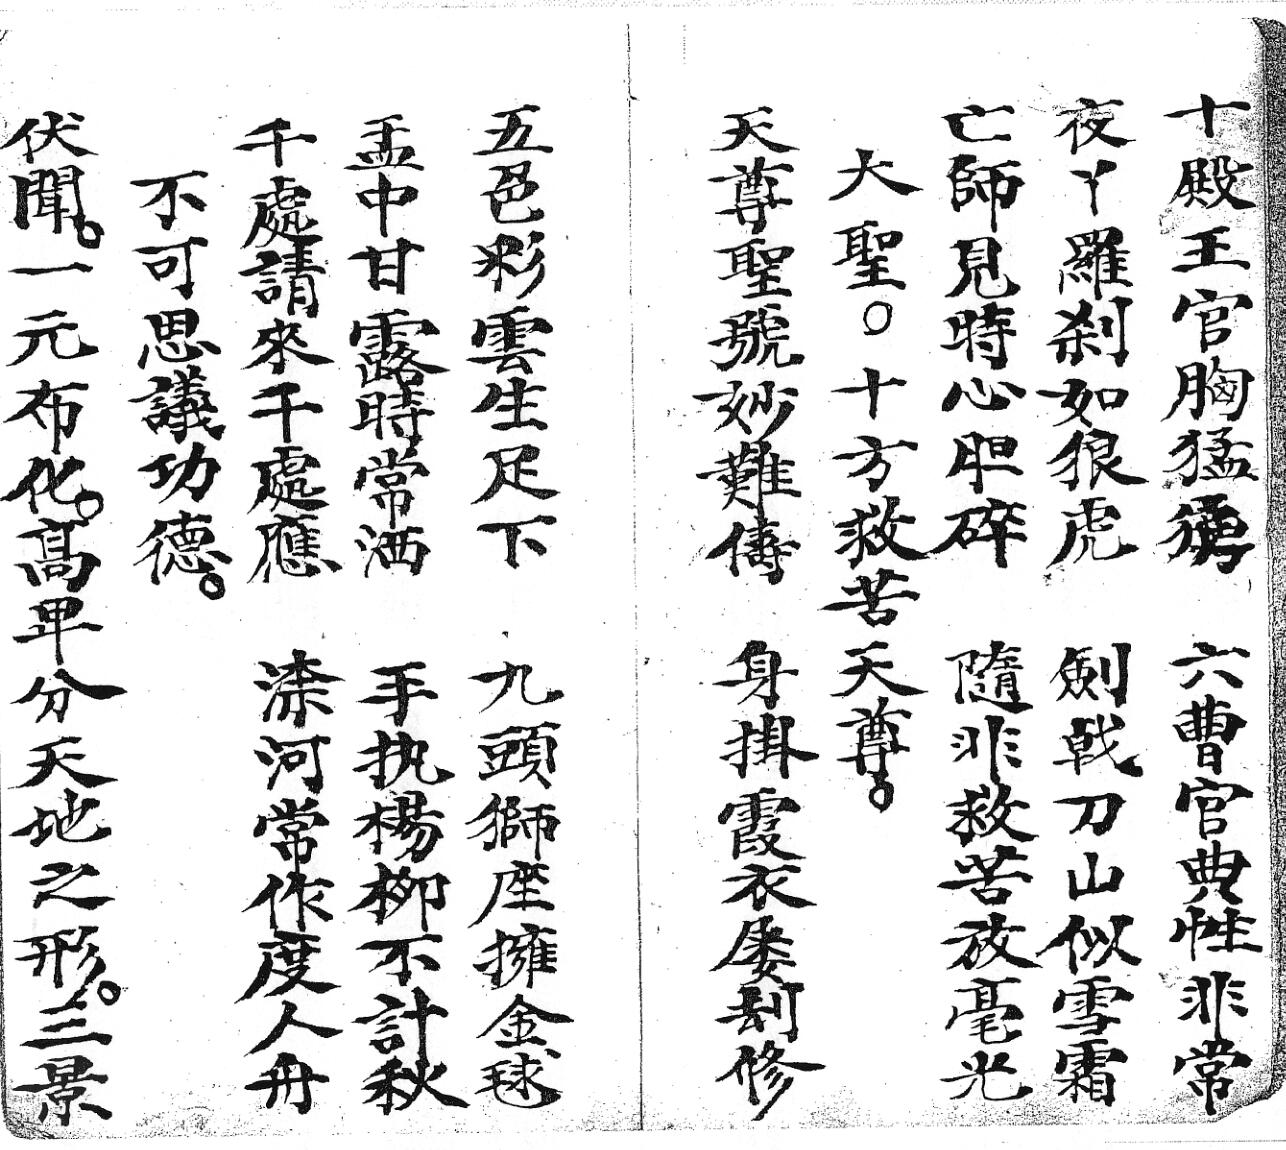 十殿王官胸猛勇 六曹官典性非常
夜丫羅刹如狼虎 劍戟刀山似雪霜
亡師見時心胆碎 隨非救苦放毫光
大聖。十方救苦天尊。
天尊聖號妙難儔 身掛霞衣屡刼修
五色彩雲生足下 九頭獅座擁金毬
盂中甘露時常洒 手执楊柳不計秋
千處請來千處應 濼河常作度人舟
不可思議功德。
伏聞。一元布化。高卑分天地之形。三景